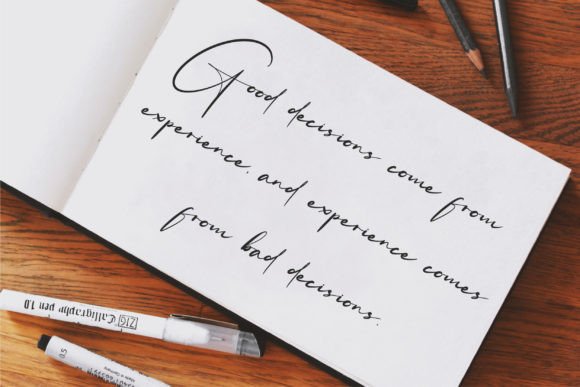 Good decisions come from
experience. and experience comes
from bad decisions.
ZIG Calligraphy pen 1.0
0.5